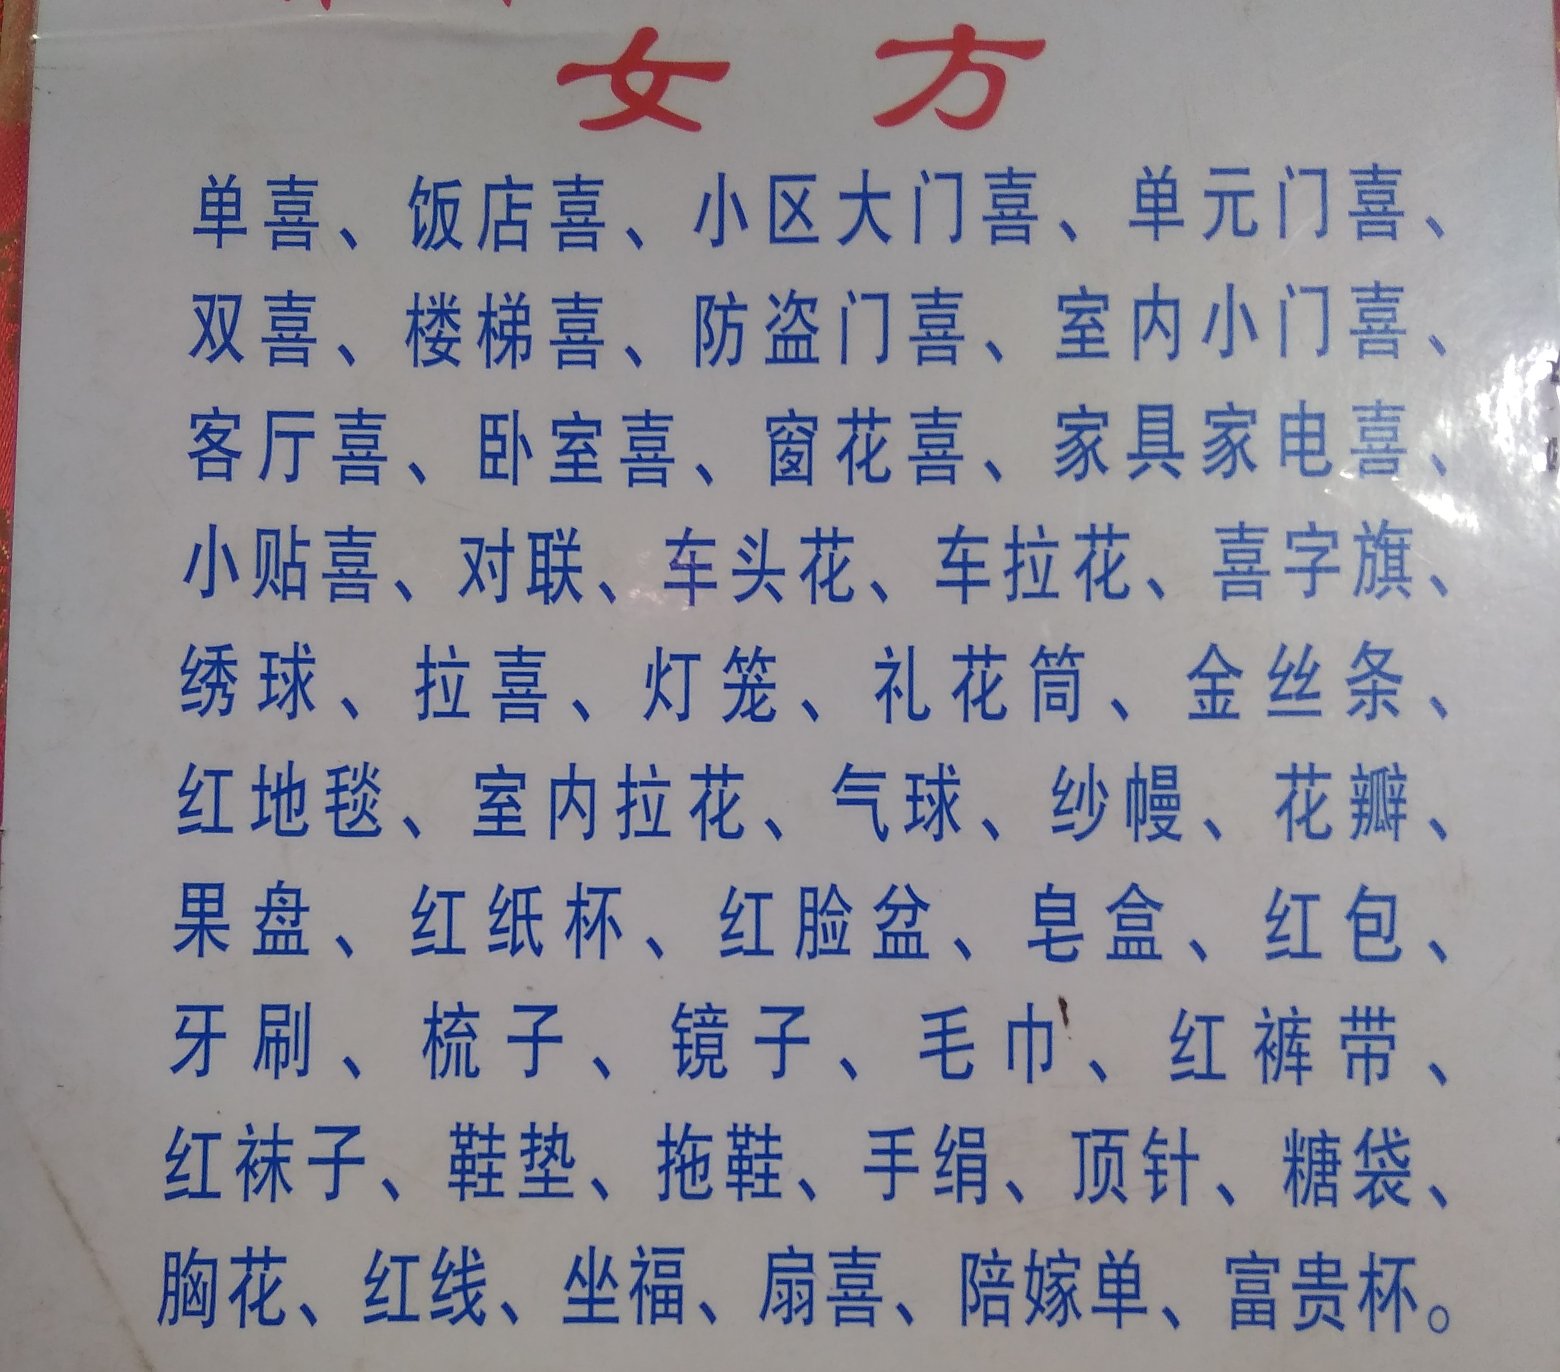 女方
单喜、饭店喜、小区大门喜、单元门喜、
双喜、楼梯喜、防盗门喜、室内小门喜、
客厅喜、卧室喜、窗花喜、家具家电喜、
小贴喜、对联、车头花、车拉花、喜字旗、
绣球、拉喜、灯笼、礼花筒、金丝条、
红地毯、室内拉花、气球、纱幔、花瓣、
果盘、红纸杯、红脸盆、皂盒、红包、
牙刷、梳子、镜子、毛巾、红裤带、
红袜子、鞋垫、拖鞋、手绢、顶针、糖袋、
胸花、红线、坐福、扇喜、陪嫁单、富贵杯。